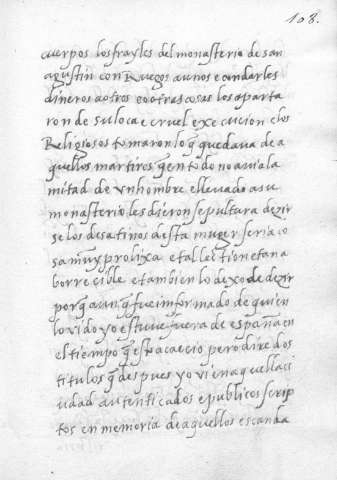 108.
cuerpos los frayles del monasterio de san
agustin con Ruegos a unos e con darles
dineros a otros e otras cosas los aparta
ron de su loca e cruel execucion e los
Religiosos tomaron lo q̃ quedava de a
quellos martires q̃ en todo no avia la
mitad de vn hombre e llevado a su
monasterio les dieron sepultura dezir
se los desatinos desta muger seria co
sa muy prolixa e tal lection e tan a
borrecible e tambien lo dexo de dezir
porq̃ aun q̃ fue informado de quien
lo vido yo estuve fuera de españa en
el tiempo q̃ esto acaecio pero dire dos
titulos q̃ despues yo vi en aquella ci
udad autenticados e publicos scrip
tos en memoria de aquellos escanda